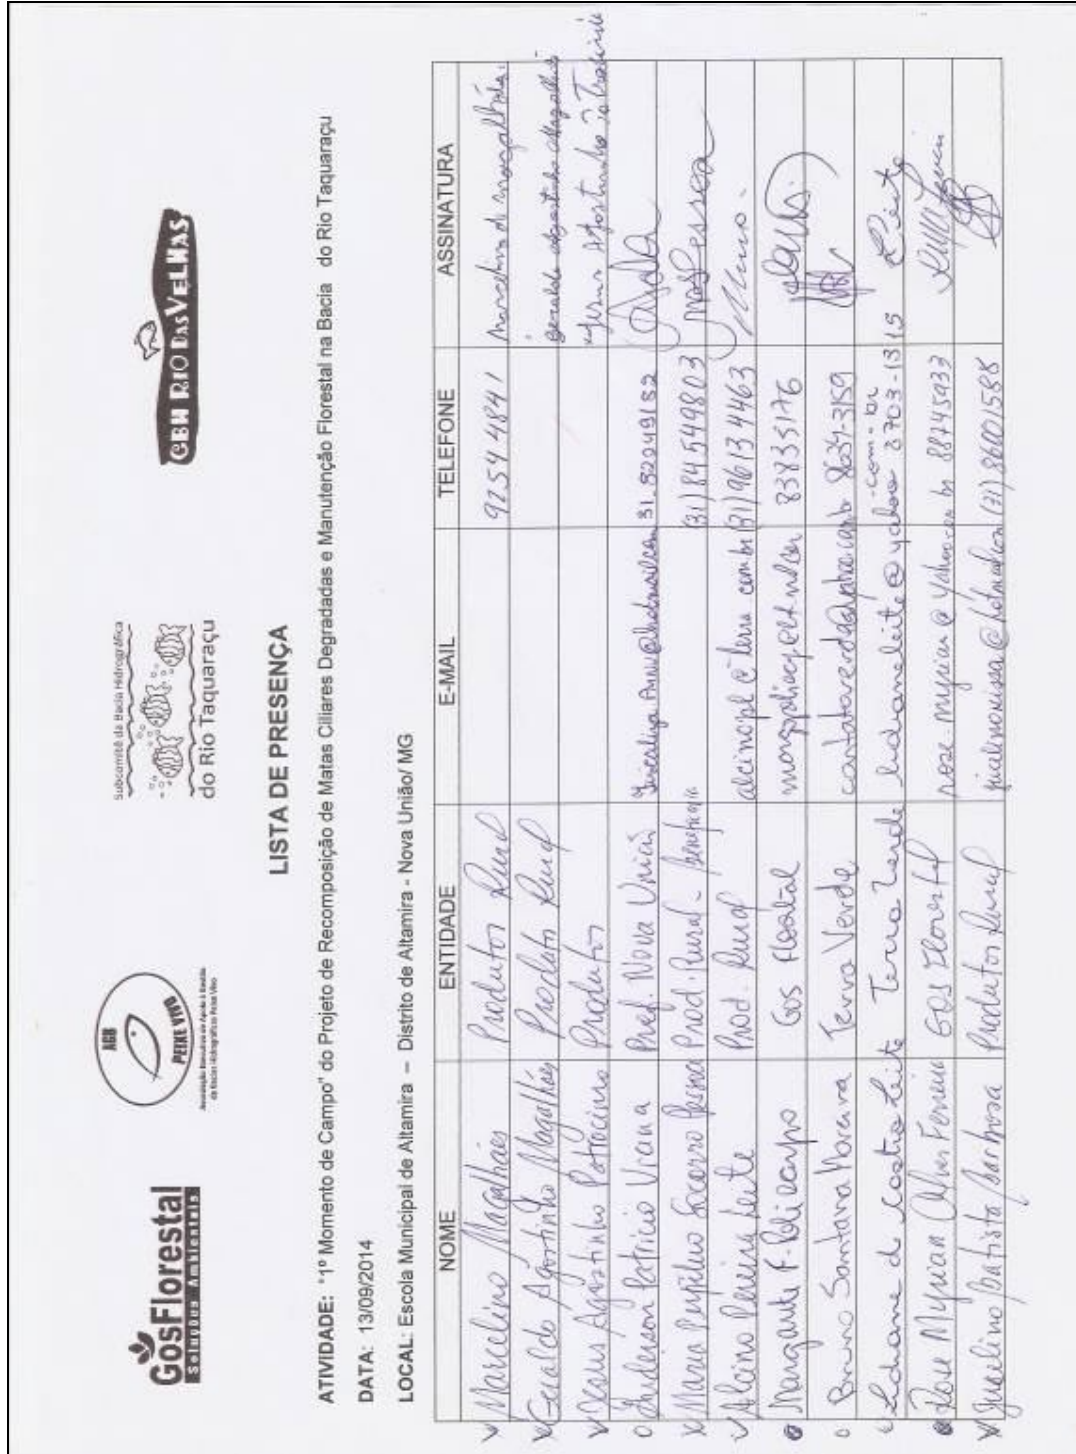 GosFlorestal
Soluções Ambientais
AGB
PEIXE VIVO
Associação Executiva de Apoio à Gestão
de Bacias Hidrográficas Peixe Vivo
Subcomitê da Bacia Hidrográfica
do Rio Taquaraçu
CBH RIO DAS VELHAS
LISTA DE PRESENÇA
ATIVIDADE: "1º Momento de Campo" do Projeto de Recomposição de Matas Ciliares Degradadas e Manutenção Florestal na Bacia do Rio Taquaraçu
DATA: 13/09/2014
LOCAL: Escola Municipal de Altamira – Distrito de Altamira - Nova União/ MG
NOME ENTIDADE E-MAIL TELEFONE ASSINATURA
Marcelino Magalhães Produtor Rural 9254 4841 Marcelino de Magalhães
Geraldo Agostinho Magalhães Produtor Rural Geraldo Agostinho Magalhães
Agostinho Patrocinio Produtor
Anderson Patricio Viana Pref. Nova União 31.82249182
Socorro Pessoa Prod. Rural (31) 84549803
Alcino Pereira Leite Prod. Rural (31) 9613 4463
F. Policarpo Gos Florestal 83835176
Bruno Santana Moreira Terra Verde 8634-3159
de Castro Leite Terra Verde @yahoo.com.br 8703-1315 Leite
Rose Myrian Alves Ferreira GOS Florestal rose-myrian@yahoo.com.br 88745933
Juselino batista barbosa Produtor Rural (31) 86001588